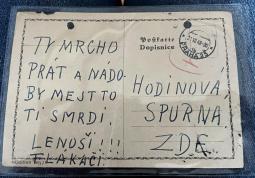 TY MRCHO
PRÁT A NÁDO-
BY MEJT TO
TI SMRDÍ,
LENOŠÍ!!!
FLAKAČI.
Postkarte
Dopisnice
PRAHA 25
HODINOVÁ
SPURNÁ
ZDE